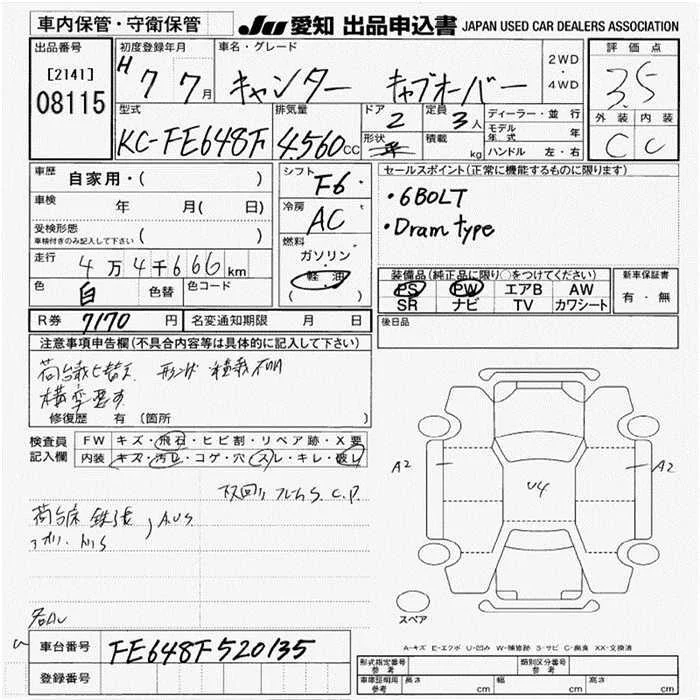 車内保管・守衛保管
JU 愛知 出品申込書 JAPAN USED CAR DEALERS ASSOCIATION
出品番号
[2141]
08115
初度登録年月
H7 7月
車名・グレード
キャンター キャブオーバー
2WD
・
4WD
評価点
3.5
外装 内装
C C
型式
KC-FE648F
排気量
4,560cc
ドア
2
形状
平
定員
3人
積載
kg
ディーラー・並行
モデル年式 年
ハンドル 左・右
車歴 自家用・( )
車検 年 月( 日)
受検形態
車検付きのみ記入して下さい ( )
走行 4万4千666km
色 白 色替 色コード
シフト
F6
冷房
AC
燃料
ガソリン
・
軽油
( )
セールスポイント(正常に機能するものに限ります)
・6BOLT
・Dram type
装備品(純正品に限り○をつけてください)
PS PW エアB AW
SR ナビ TV カワシート
新車保証書
有・無
R券 7170円 名変通知期限 月 日
後日品
注意事項申告欄(不具合内容等は具体的に記入して下さい)
荷台載せ替え 形状 積載不明
構変要す
修復歴 有 (箇所 )
検査員記入欄
FW キズ・飛石・ヒビ割・リペア跡・X要
内装 キズ・汚レ・コゲ・穴・スレ・キレ・破レ
下回り フレームS、C、P
荷台床 鉄張
A2
U4
A2
スペア
A-キズ E-エクボ U-凹み W-補修跡 S-サビ C-腐食 XX-交換済
車台番号 FE648F520135
登録番号
形式指定番号
参考
類別区分番号
参考
車庫証明用
参考
長さ cm 幅 cm 高さ cm